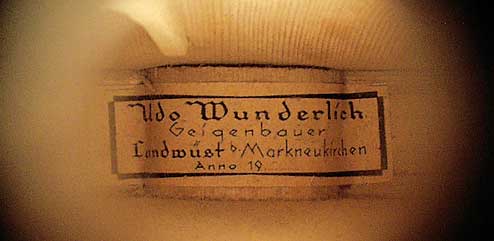 Udo Wunderlich
Geigenbauer
Landwüst b. Markneukirchen
Anno 19